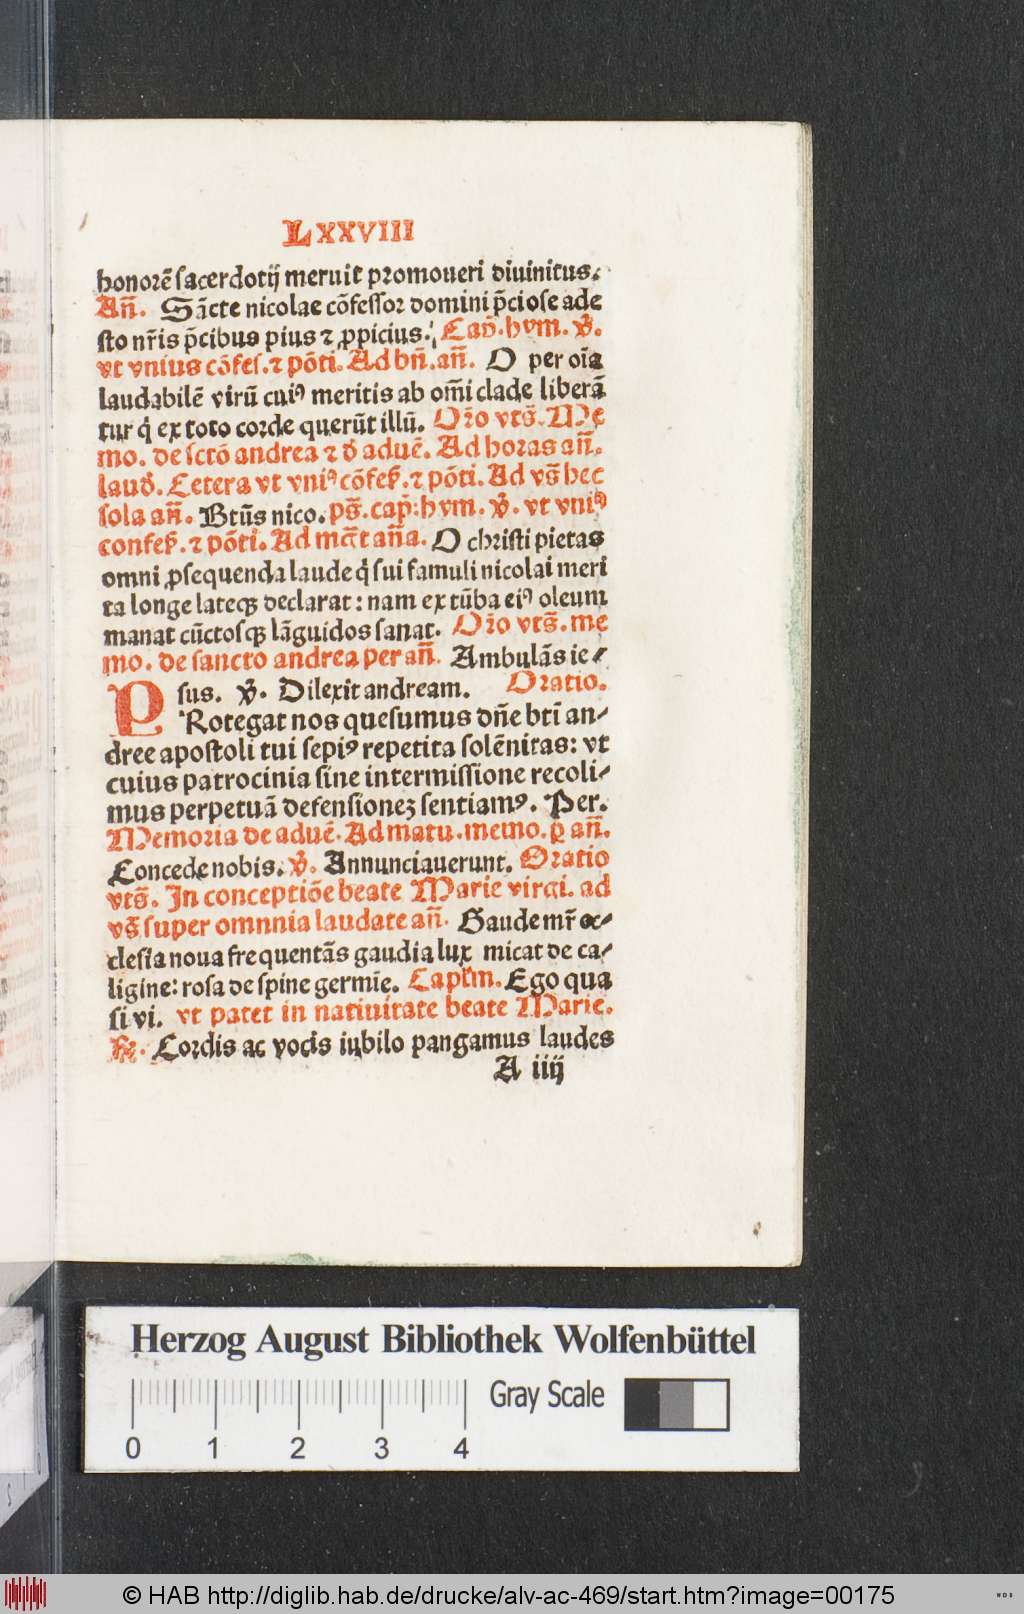 LXXVIII
honorē sacerdotij meruit promoueri diuinitus.
Añ. Sācte nicolae cōfessor domini p̄ciose ade
sto nr̄is p̄cibus pius ⁊ ꝓpicius. Cap̄. hym. v̄.
vt vnius cōfes. ⁊ pōti. Ad bn̄. añ. O per oīa
laudabilē virū cuiꝰ meritis ab om̄i clade liberā
tur q̇ ex toto corde querūt illū. Or̄o vts̄. Me
mo. de sctō andrea ⁊ đ aduē. Ad horas añ.
lauđ. Cetera vt vniꝰ cōfes̄. ⁊ pōti. Ad vs̄ hec
sola añ. Btūs nico. ps̄. cap̄: hym. v̄. vt vniꝰ
confes̄. ⁊ pōti. Ad mc̄t aña. O christi pietas
omni ꝓsequenda laude q̇ sui famuli nicolai meri
ta longe lateqꝫ declarat: nam ex tūba eiꝰ oleum
manat cūctosqꝫ lāguidos sanat. Or̄o vts̄. me
mo. de sancto andrea per añ. Ambulās ie/
sus. v̄. Dilexit andream. Oratio.
PRotegat nos quesumus dñe bti an/
dree apostoli tui sepiꝰ repetita solēnitas: vt
cuius patrocinia sine intermissione recoli/
mus perpetuā defensioneꝫ sentiamꝰ. Per.
Memoria de aduē. Ad matu. memo. ꝑ añ.
Concede nobis. v̄. Annunciauerunt. Oratio
vts̄. In conceptiōe beate Marie virgi. ad
vs̄ super omnnia laudate añ. Gaude mr̄ ec/
clesia noua frequentās gaudia lux micat de ca/
ligine: rosa de spine germīe. Capl̄m. Ego qua
si vi. vt patet in natiuitate beate Marie.
R̄. Cordis ac vocis iubilo pangamus laudes
A iiij
Herzog August Bibliothek Wolfenbüttel
Gray Scale
0 1 2 3 4
© HAB http://diglib.hab.de/drucke/alv-ac-469/start.htm?image=00175